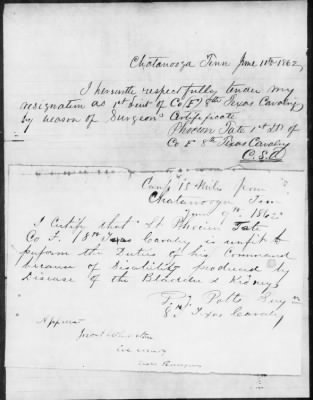 Chatanooga Tenn June 10th 1862,
I herewith respectfully tender my
resignation as 1st Lieut of Co F, 8th Texas Cavalry
by reason of Surgeons Certificate
Phocion Tate 1st Lt of
Co F 8th Texas Cavalry
C.S.A.
Camp 15 Miles from
Chatanooga Tenn
June 9th 1862
I Certify that Lt Phocion Tate
Co F. 8th Texas Cavalry is unfit to
perform the Duties of his Command
because of Disability produced by
Disease of the Bladder & Kidneys
Potts Surg
8th Texas Cavalry